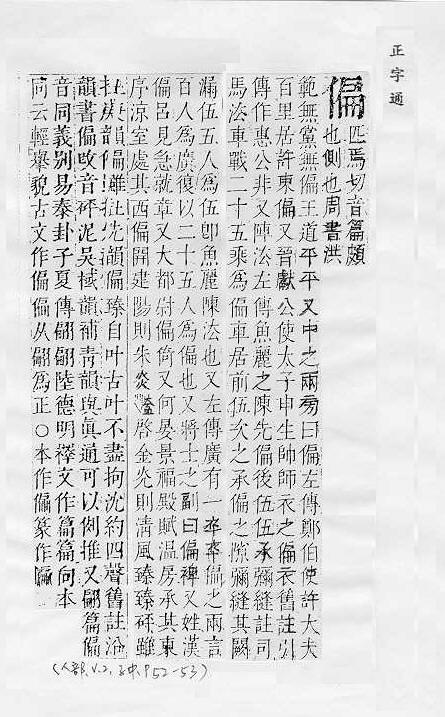 正字通
偏
匹焉切音篇頗
也側也周書洪
範無黨無偏王道平平又中之兩旁曰偏左傳鄭伯使許大夫
百里居許東偏又晉獻公使太子申生帥師衣之偏衣舊註引
傳作惠公非又陣法左傳魚麗之陳先偏後伍伍承彌縫註司
馬法車戰二十五乘爲偏車居前伍次之承偏之隙彌縫其闕
漏伍五人爲伍卽魚麗陳法也又左傳廣有一卒卒偏之兩言
百人爲廣復以二十五人爲偏也又將士之副曰偏裨又姓漢
偏呂見急就章又大都尉偏倚又何晏景福殿賦溫房承其東
序涼室處其西偏開建陽則朱炎豔啓金光則清風臻臻砰雖
在庚韻偏雖在先韻偏臻自叶古叶不盡拘沈約四聲舊註沿
韻書偏攺音砰泥吳棫韻補青韻與眞通可以例推又翩篇偏
音同義別易泰卦子夏傳翩翩陸德明釋文作篇篇向本
同云輕擧貌古文作偏偏从翩爲正○本作偏篆作偏
(人部, V.2, 子中, P.52-53)